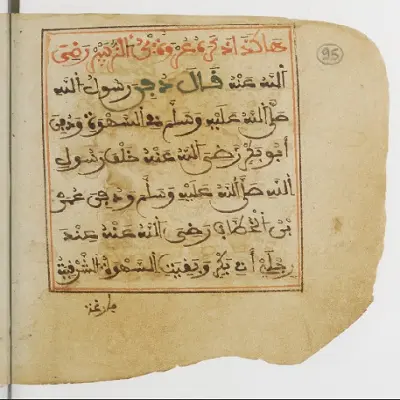 هاكذا ذكره عروة بن الزبير رضي
95
الله عنه قال دفن رسول الله
صلى الله عليه وسلم في السهوة ودفن
أبو بكر رضي الله عنه خلف رسول
الله صلى الله عليه وسلم ودفن عمر
بن الخطاب رضي الله عنه عند
رجلي أبي بكر وبقيت السهوة الشرقية
فارغة